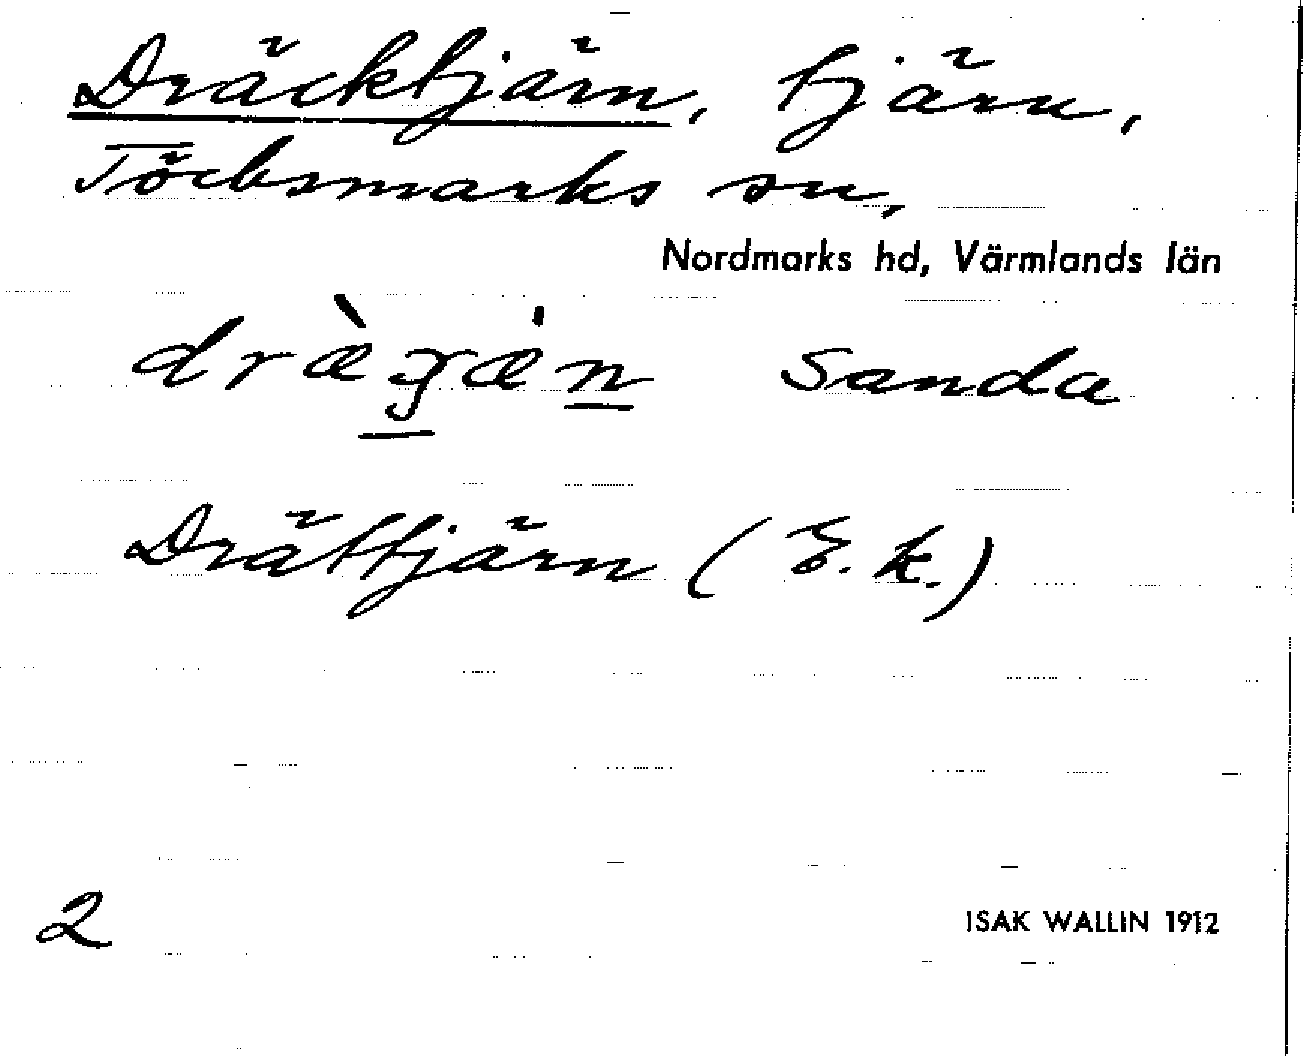 Dräcktjärn, tjärn,
Töcksmarks sn,
Nordmarks hd, Värmlands län
Sanda
Drättjärn (E.k.)
2
ISAK WALLIN 1912